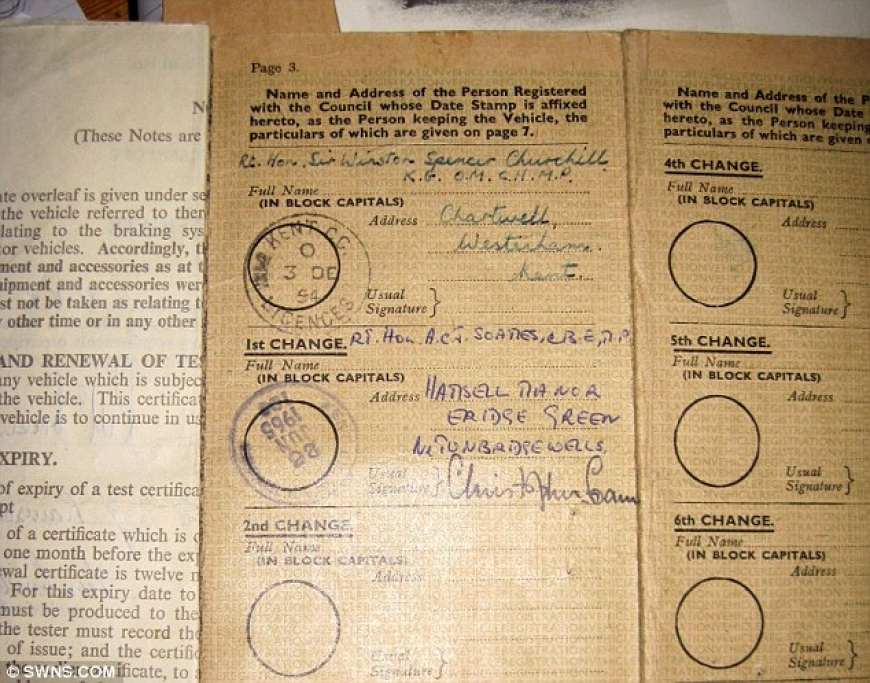 N
(These Notes are
ate overleaf is given under se
the vehicle referred to ther
lating to the braking sys
or vehicles. Accordingly, t
ment and accessories as at t
uipment and accessories wer
st not be taken as relating t
y other time or in any other
AND RENEWAL OF TES
any vehicle which is subjec
the vehicle. This certificat
vehicle is to continue in us
XPIRY.
of expiry of a test certifica
pt
of a certificate which is
one month before the exp
wal certificate is twelve m
For this expiry date to
must be produced to the
the tester must record the
of issue; and the certific
certificate, to
© SWNS.COM
Page 3.
Name and Address of the Person Registered
with the Council whose Date Stamp is affixed
hereto, as the Person keeping the Vehicle, the
particulars of which are given on page 7.
Rt. Hon. Sir Winston Spencer Churchill
K.G. O.M. C.H. M.P.
Full Name
(IN BLOCK CAPITALS)
Address Chartwell,
Westerham.
Kent.
KENT C.C.
O
3 DE
54
LICENCES
Usual
Signature }
1st CHANGE. RT. HON. A.C.J. SOAMES, C.B.E, M.P.
Full Name
(IN BLOCK CAPITALS)
Address HAMSELL MANOR
ERIDGE GREEN
Nr TUNBRIDGE WELLS.
JUN
1965
Usual
Signature } Christopher Soames
2nd CHANGE.
Full Name
(IN BLOCK CAPITALS)
Address
Usual
Signature }
Name and Address of the P
with the Council whose Date
hereto, as the Person keeping
particulars of which are given o
4th CHANGE.
Full Name
(IN BLOCK CAPITALS)
Address
Usual
Signature }
5th CHANGE.
Full Name
(IN BLOCK CAPITALS)
Address
Usual
Signature }
6th CHANGE.
Full Name
(IN BLOCK CAPITALS)
Address
Usual
Signature }